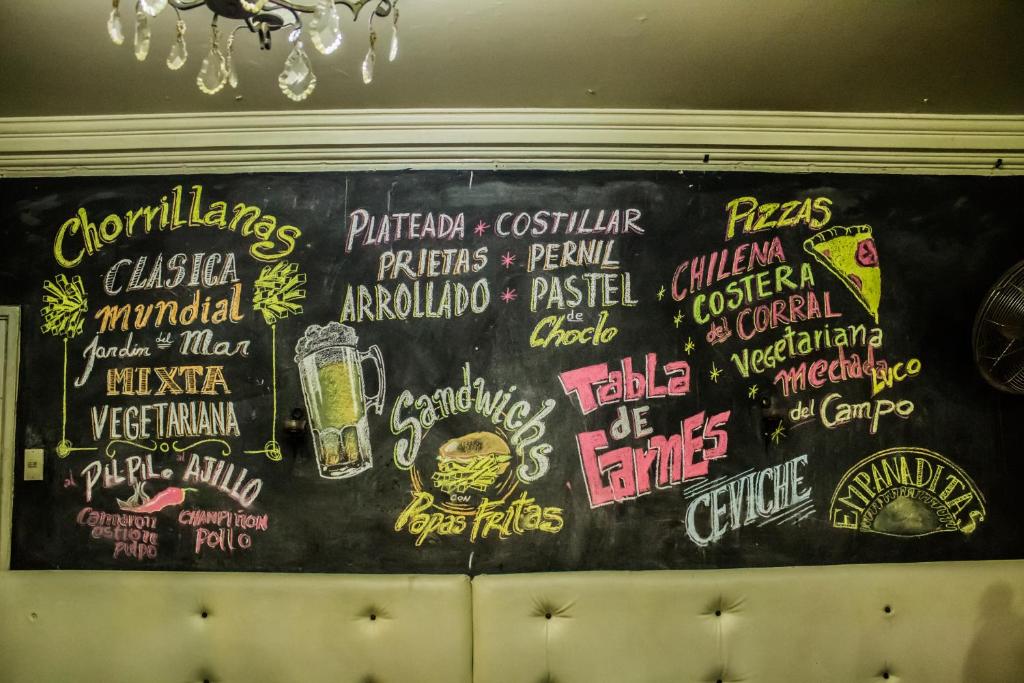 Chorrillanas
CLASICA
mundial
Jardin del Mar
MIXTA
VEGETARIANA
al PILPIL o AJILLO
Camaron
ostion
pulpo
CHAMPIÑON
POLLO
PLATEADA * COSTILLAR
PRIETAS * PERNIL
ARROLLADO * PASTEL
de
Choclo
Sandwichs
CON
Papas Fritas
TABLA
DE
CARNES
PIZZAS
CHILENA
COSTERA
del CORRAL
Vegetariana
mechada Luco
del Campo
CEVICHE
EMPANADITAS